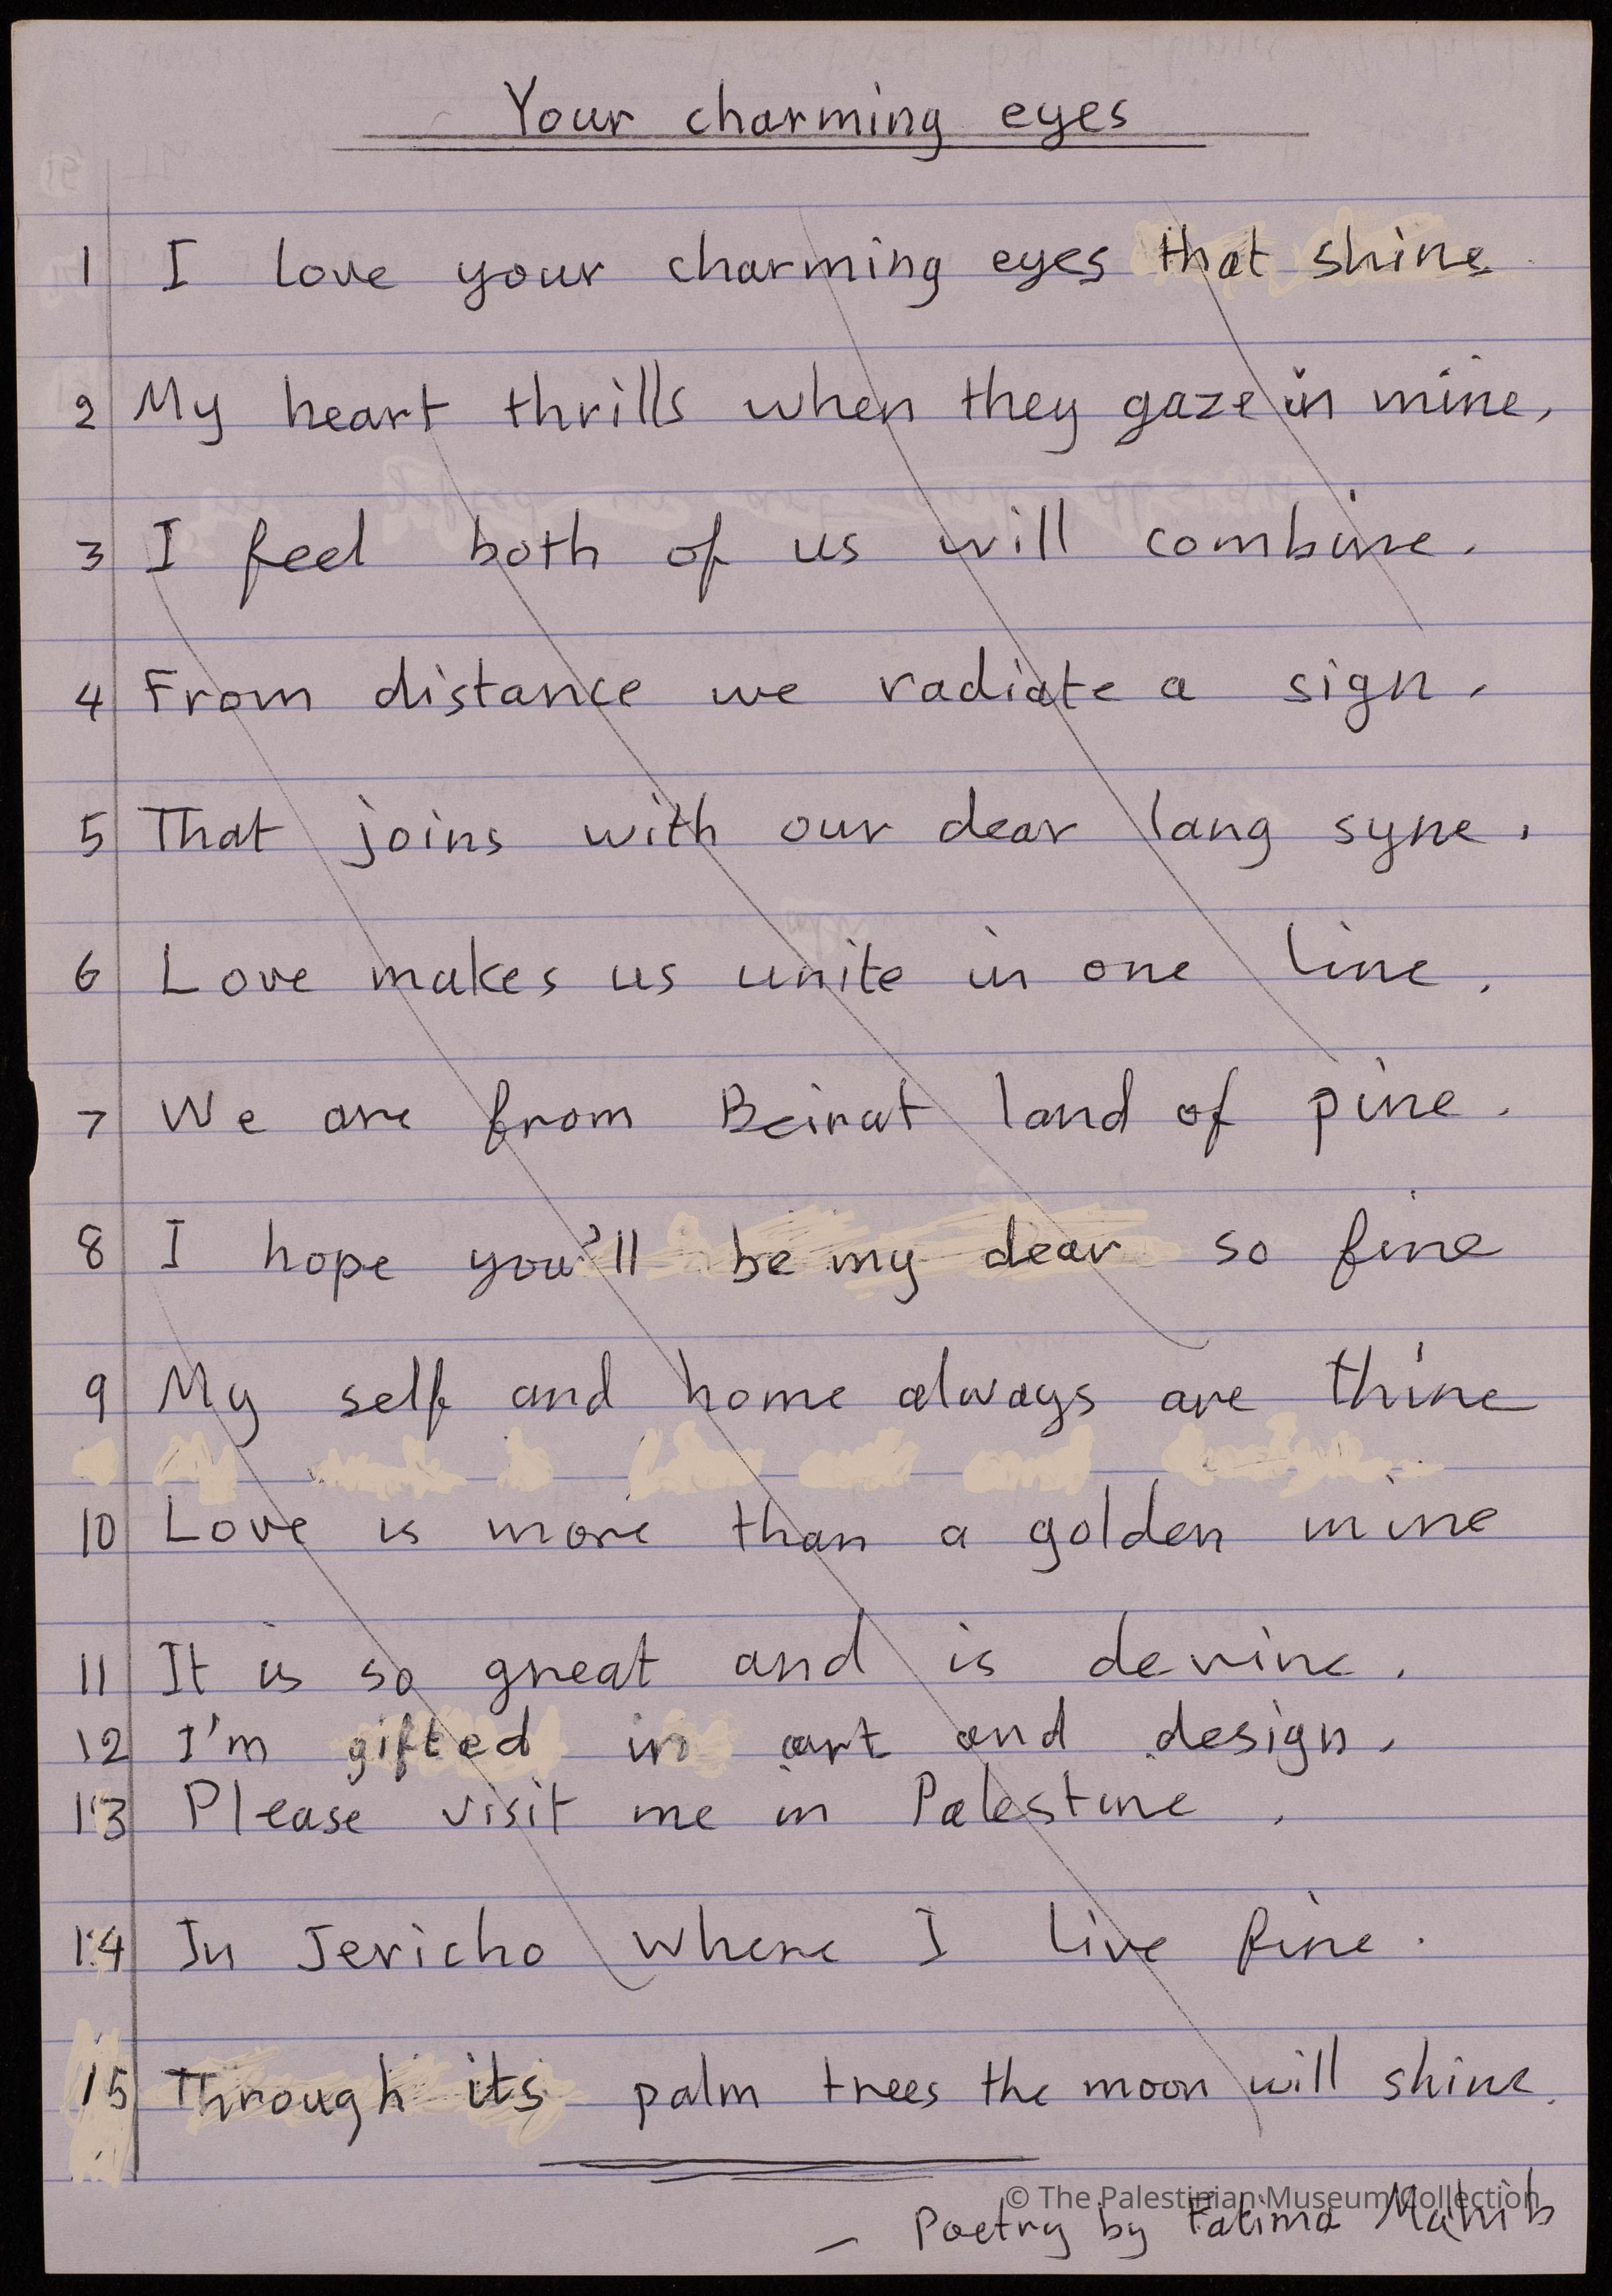 Your charming eyes
1 I love your charming eyes that shine
2 My heart thrills when they gaze in mine,
3 I feel both of us will combine.
4 From distance we radiate a sign.
5 That joins with our dear lang syne.
6 Love makes us unite in one line.
7 We are from Beirut land of pine.
8 I hope you'll be my dear so fine
9 My self and home always are thine
10 Love is more than a golden mine
11 It is so great and is devine.
12 I'm gifted in art and design.
13 Please visit me in Palestine.
14 In Jericho where I live fine.
15 Through its palm trees the moon will shine.
© The Palestinian Museum Collection
— Poetry by Fatima